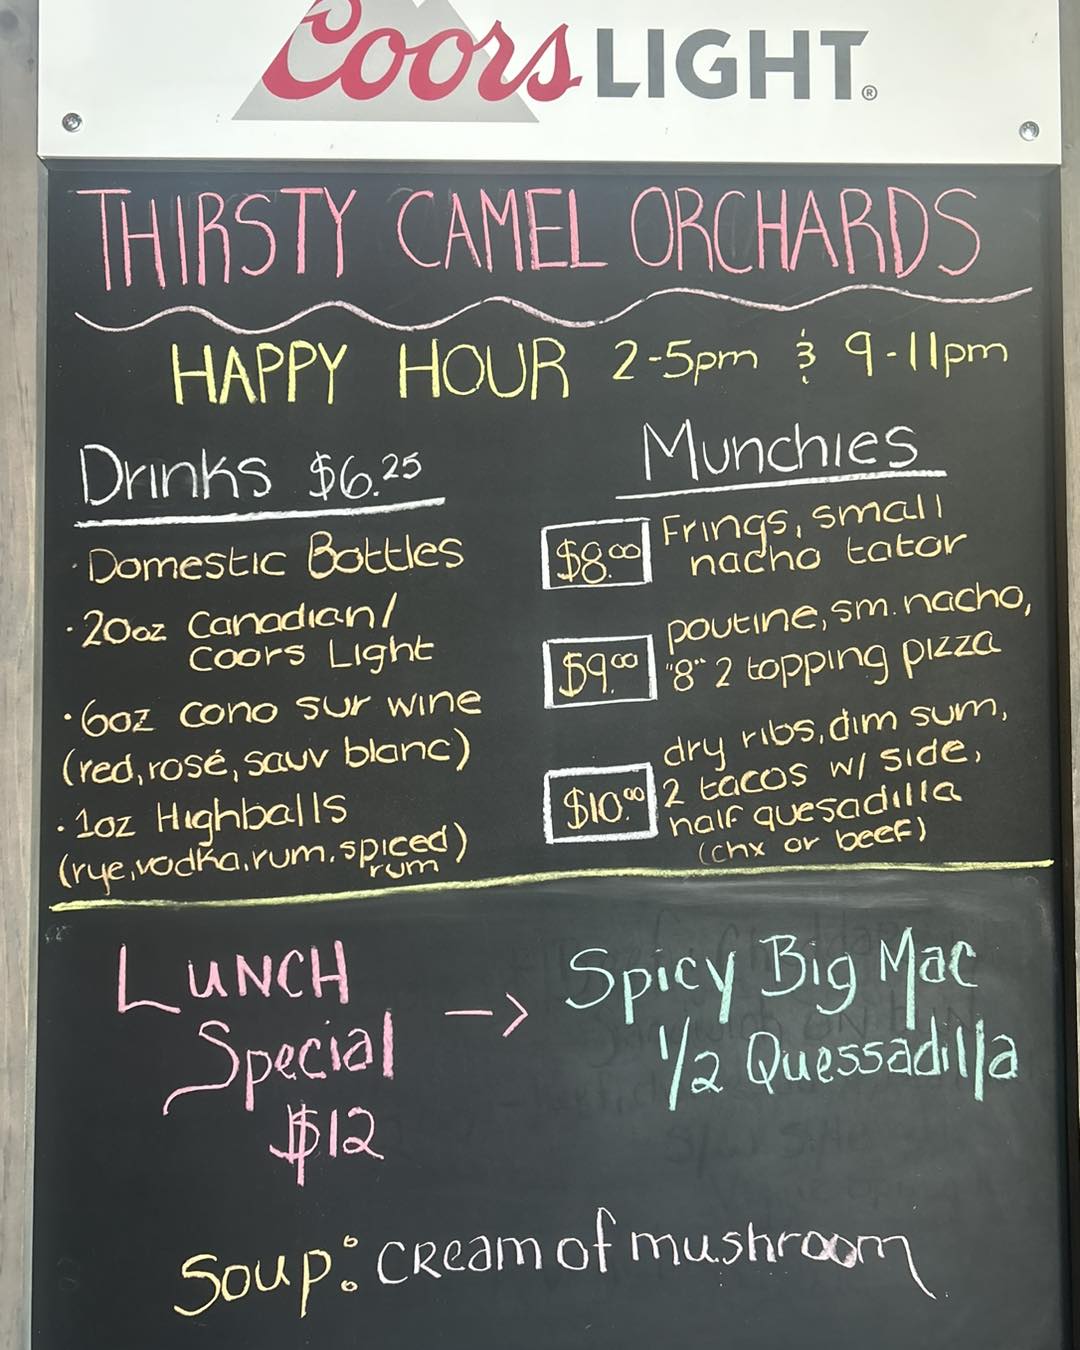 Coors LIGHT®
THIRSTY CAMEL ORCHARDS
HAPPY HOUR 2-5pm & 9-11pm
Drinks $6.25
· Domestic Bottles
· 20oz Canadian/
Coors Light
· 6oz cono sur wine
(red, rosé, sauv blanc)
· 1oz Highballs
(rye, vodka, rum, spiced)
rum
Munchies
$8.00 Frings, small
nacho tator
$9.00 poutine, sm. nacho,
"8" 2 topping pizza
$10.00 dry ribs, dim sum,
2 tacos w/ side,
half quesadilla
(chx or beef)
LUNCH
Special
$12
→ Spicy Big Mac
1/2 Quessadilla
Soup: cream of mushroom